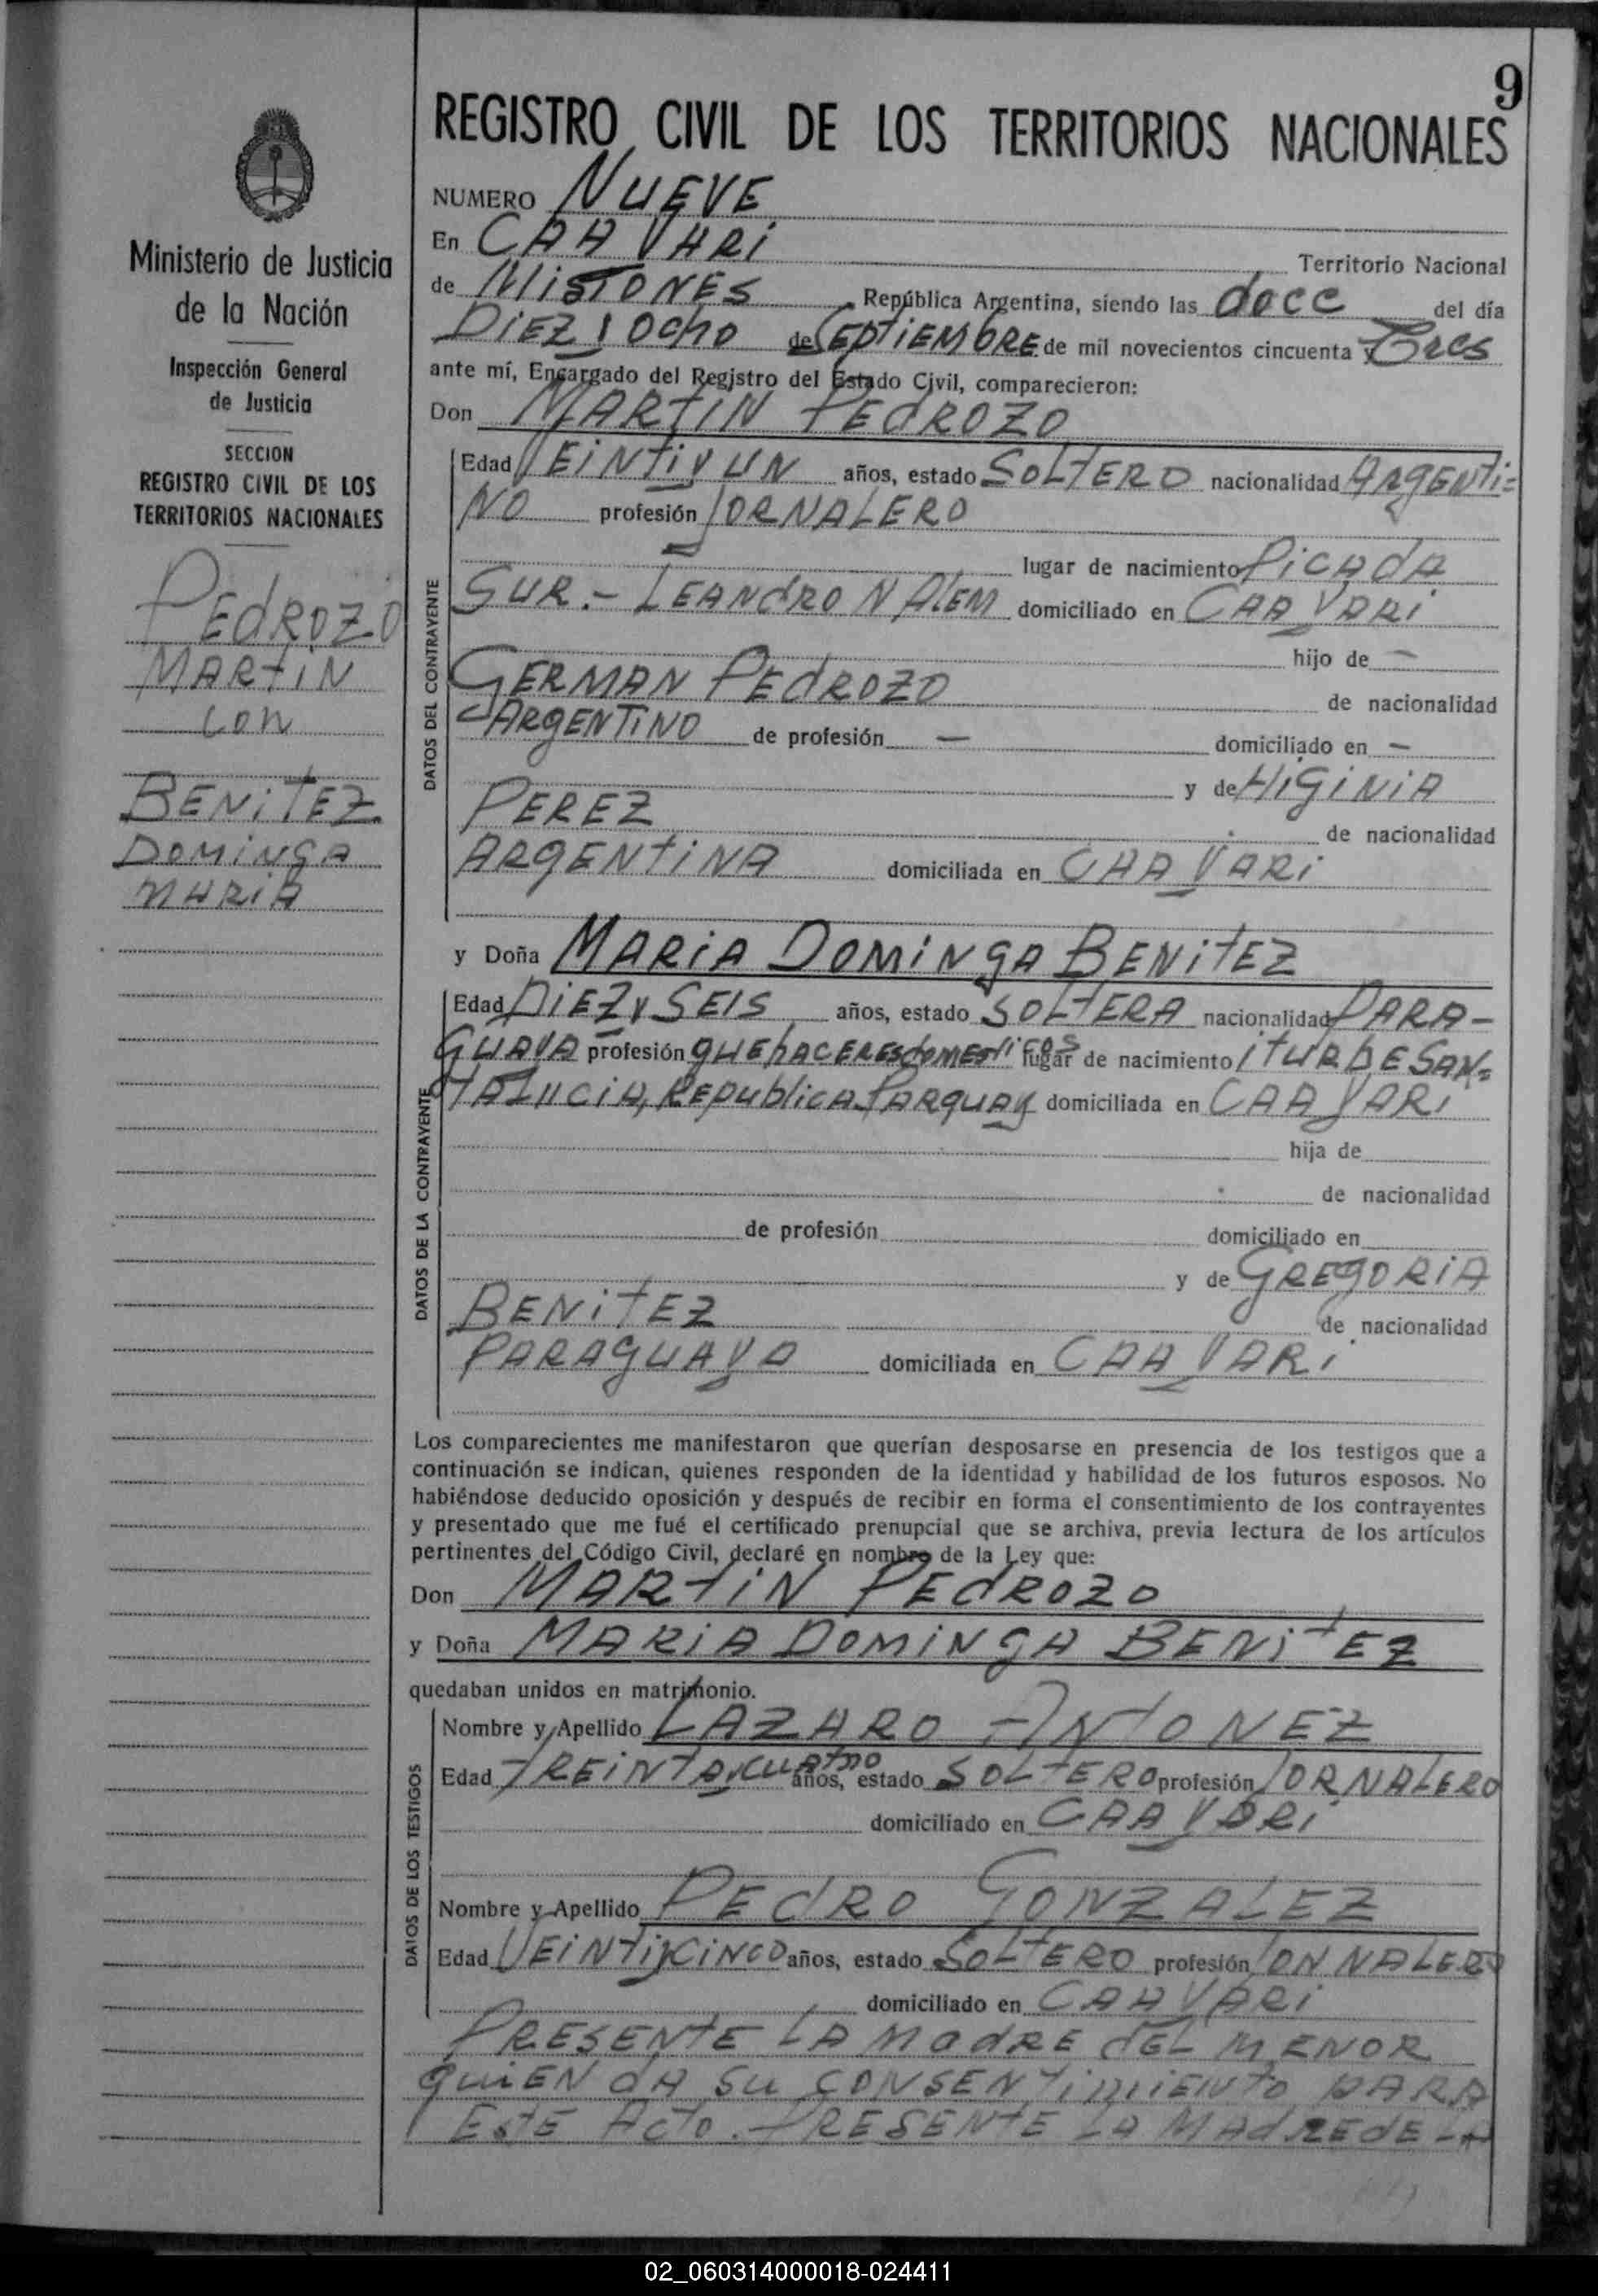 9
REGISTRO CIVIL DE LOS TERRITORIOS NACIONALES
Ministerio de Justicia
de la Nación
Inspección General
de Justicia
SECCION
REGISTRO CIVIL DE LOS
TERRITORIOS NACIONALES
PEdROZO
MARtIN
con
BENiTEZ
DOMiNGA
MARiA
NUMERO NUEVE
En CAA YARi Territorio Nacional
de MiSIONES República Argentina, siendo las docc del día
DiEZ y OchO de SEPTiEMbRE de mil novecientos cincuenta y Tres
ante mí, Encargado del Registro del Estado Civil, comparecieron:
Don MARTIN PEdROZO
DATOS DEL CONTRAYENTE
Edad VEiNTiYUN años, estado SOLTERO nacionalidad ARgENTi=
NO profesión JORNALERO
lugar de nacimiento PiCAdA
SUR.- LEANdRO N ALEM domiciliado en CAA YARi
hijo de -
GERMAN PEdROZO de nacionalidad
ARgENTINO de profesión - domiciliado en -
y de HiGiNiA
PEREZ de nacionalidad
ARgENtiNA domiciliada en CAA YARi
y Doña MARiA DOMiNgA BENiTEZ
DATOS DE LA CONTRAYENTE
Edad DiEZ y SEIS años, estado SOLTERA nacionalidad PARA-
GUAYA profesión QUEhACERES dOMESTiCOS lugar de nacimiento iTURBE SAN=
TA LUCiA, REpubliCA PARguAy domiciliada en CAA YARi
hija de
de nacionalidad
de profesión domiciliado en
y de GREgORiA
BENiTEZ de nacionalidad
PARAgUAYA domiciliada en CAA YARi
Los comparecientes me manifestaron que querían desposarse en presencia de los testigos que a
continuación se indican, quienes responden de la identidad y habilidad de los futuros esposos. No
habiéndose deducido oposición y después de recibir en forma el consentimiento de los contrayentes
y presentado que me fué el certificado prenupcial que se archiva, previa lectura de los artículos
pertinentes del Código Civil, declaré en nombre de la Ley que:
Don MARTiN PEdROZO
y Doña MARiA DOMiNgA BENiTEZ
quedaban unidos en matrimonio.
DATOS DE LOS TESTIGOS
Nombre y Apellido LAZARO ANTONEZ
Edad TREiNTA y CUATRO años, estado SOLTERO profesión JORNALERO
domiciliado en CAA YARi
Nombre y Apellido PEdRO GONZALEZ
Edad VEiNTiyCiNCO años, estado SOLTERO profesión JORNALERO
domiciliado en CAA YARi
PRESENTE LA MAdRE dEL MENOR
quiEN dA SU CONSENTiMiENtO PARA
EStE ACtO. PRESENtE LA MAdRE dE LA
02_060314000018-024411